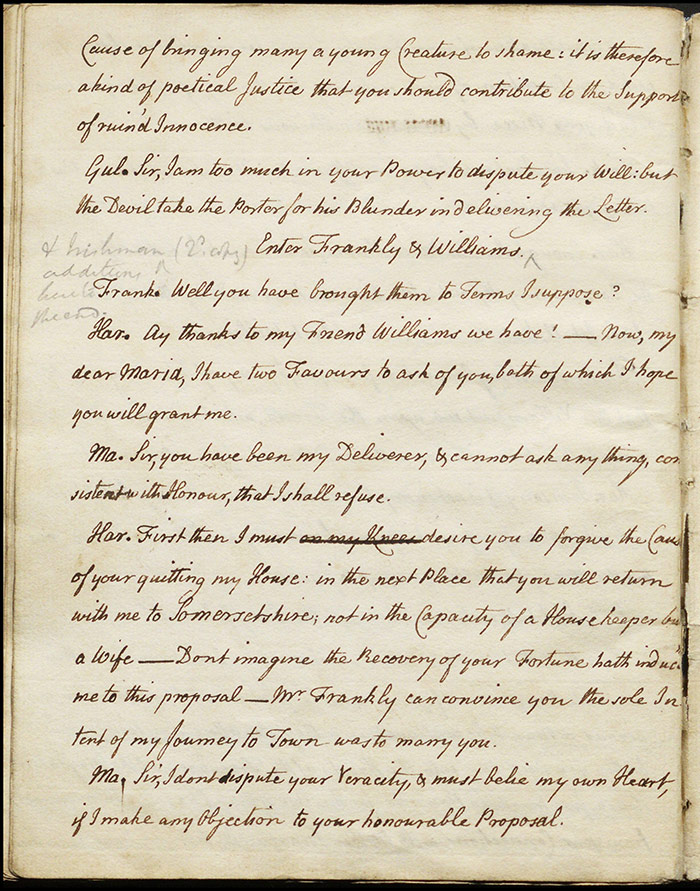 Cause of bringing many a young Creature to shame: it is therefore
a kind of poetical Justice that you should contribute to the Support
of ruin'd Innocence.
Gul. Sir, I am too much in your Power to dispute your Will: but
the Devil take the Porter for his Blunder in delivering the Letter.
& Irishman (2d copy)
additions
the end.
Enter Frankly & Williams. ^
Frank. Well you have brought them to Terms I suppose?
Har. Ay thanks to my Friend Williams we have! — Now, my
dear Maria, I have two Favours to ask of you, both of which I hope
you will grant me.
Ma. Sir, you have been my Deliverer, & cannot ask any thing, con
sistent with Honour, that I shall refuse.
Har. First then I must on my Knees desire you to forgive the Caus
of your quitting my House: in the next Place that you will return
with me to Somersetshire; not in the Capacity of a House keeper bu
a Wife — Dont imagine the Recovery of your Fortune hath induc'
me to this proposal — Mr. Frankly can convince you the sole In
tent of my Journey to Town was to marry you.
Ma. Sir, I dont dispute your Veracity, & must belie my own Heart,
if I make any Objection to your honourable Proposal.